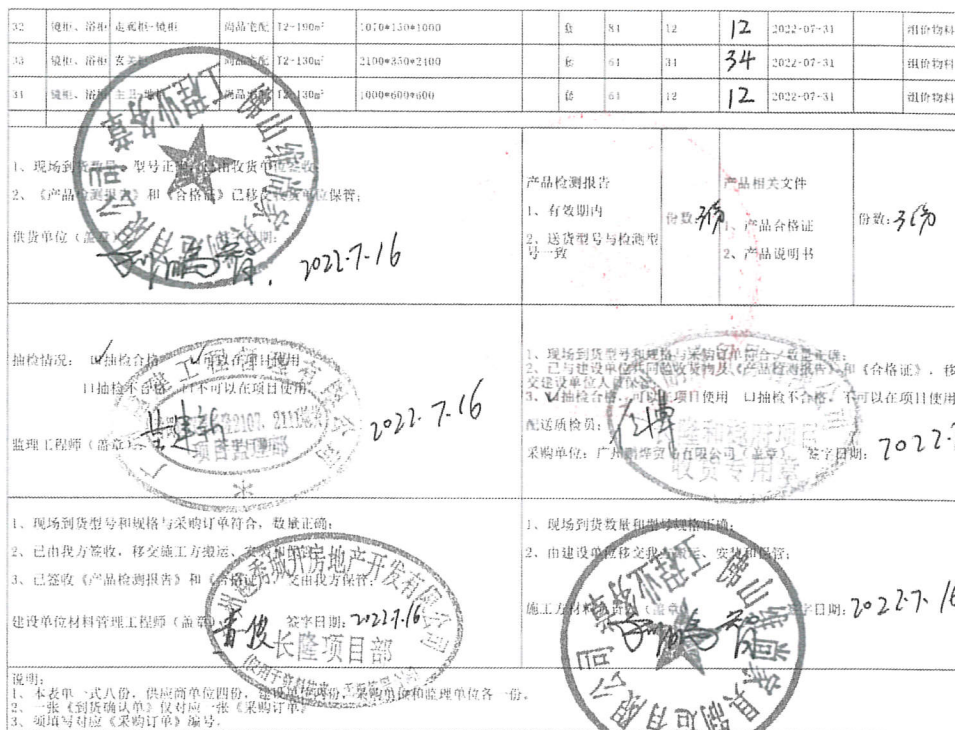 32 镜柜、浴柜 走廊柜-镜柜 尚品宅配 T2-190m² 1070*150*1000 套 84 12 12 2022-07-31 组价物料
33 镜柜、浴柜 玄关 尚品宅配 T2-130m² 2100*350*2400 套 64 34 34 2022-07-31 组价物料
34 镜柜、浴柜 尚品宅配 T2-130m² 1000*600*600 套 64 12 12 2022-07-31 组价物料
1、现场到货数量、型号正确 由收货单位签收
2、《产品检测报告》和《合格证》已移交 单位保管;
供货单位(盖章) 2022.7.16
产品检测报告
1、有效期内
2、送货型号与检测型号一致
份数:3份
产品相关文件
1、产品合格证
2、产品说明书
份数:3份
佛山维尚家具制造有限公司
工程业务章
抽检情况: 口抽检合格 口可以在项目使用
口抽检不合格 口不可以在项目使用
监理工程师(盖章): 2022.7.16
项目监理部
1、现场到货型号和规格与采购订单符合,数量正确;
2、已与建设单位共同验收货物及《产品检测报告》和《合格证》,移交建设单位人员保管;
3、口抽检合格,可以在项目使用 口抽检不合格,不可以在项目使用
配送质检员:
采购单位:广州 贸易有限公司(盖章) 签字日期: 2022.7
收货专用章
1、现场到货型号和规格与采购订单符合,数量正确;
2、已由我方签收,移交施工方搬运、安装和保管;
3、已签收《产品检测报告》和《合格证》,交由我方保管;
建设单位材料管理工程师(盖章) 签字日期: 2022.7.16
州越秀城开房地产开发有限公司
长隆项目部
1、现场到货数量和型号规格正确;
2、由建设单位移交我方搬运、安装和保管;
施工方材料 (盖章) 签字日期: 2022.7.16
佛山维尚家具制造有限公司
工程业务章
说明:
1、本表单一式八份,供应商单位四份,建设单位两份,采购单位和监理单位各一份。
2、一张《到货确认单》仅对应一张《采购订单》
3、须填写对应《采购订单》编号。